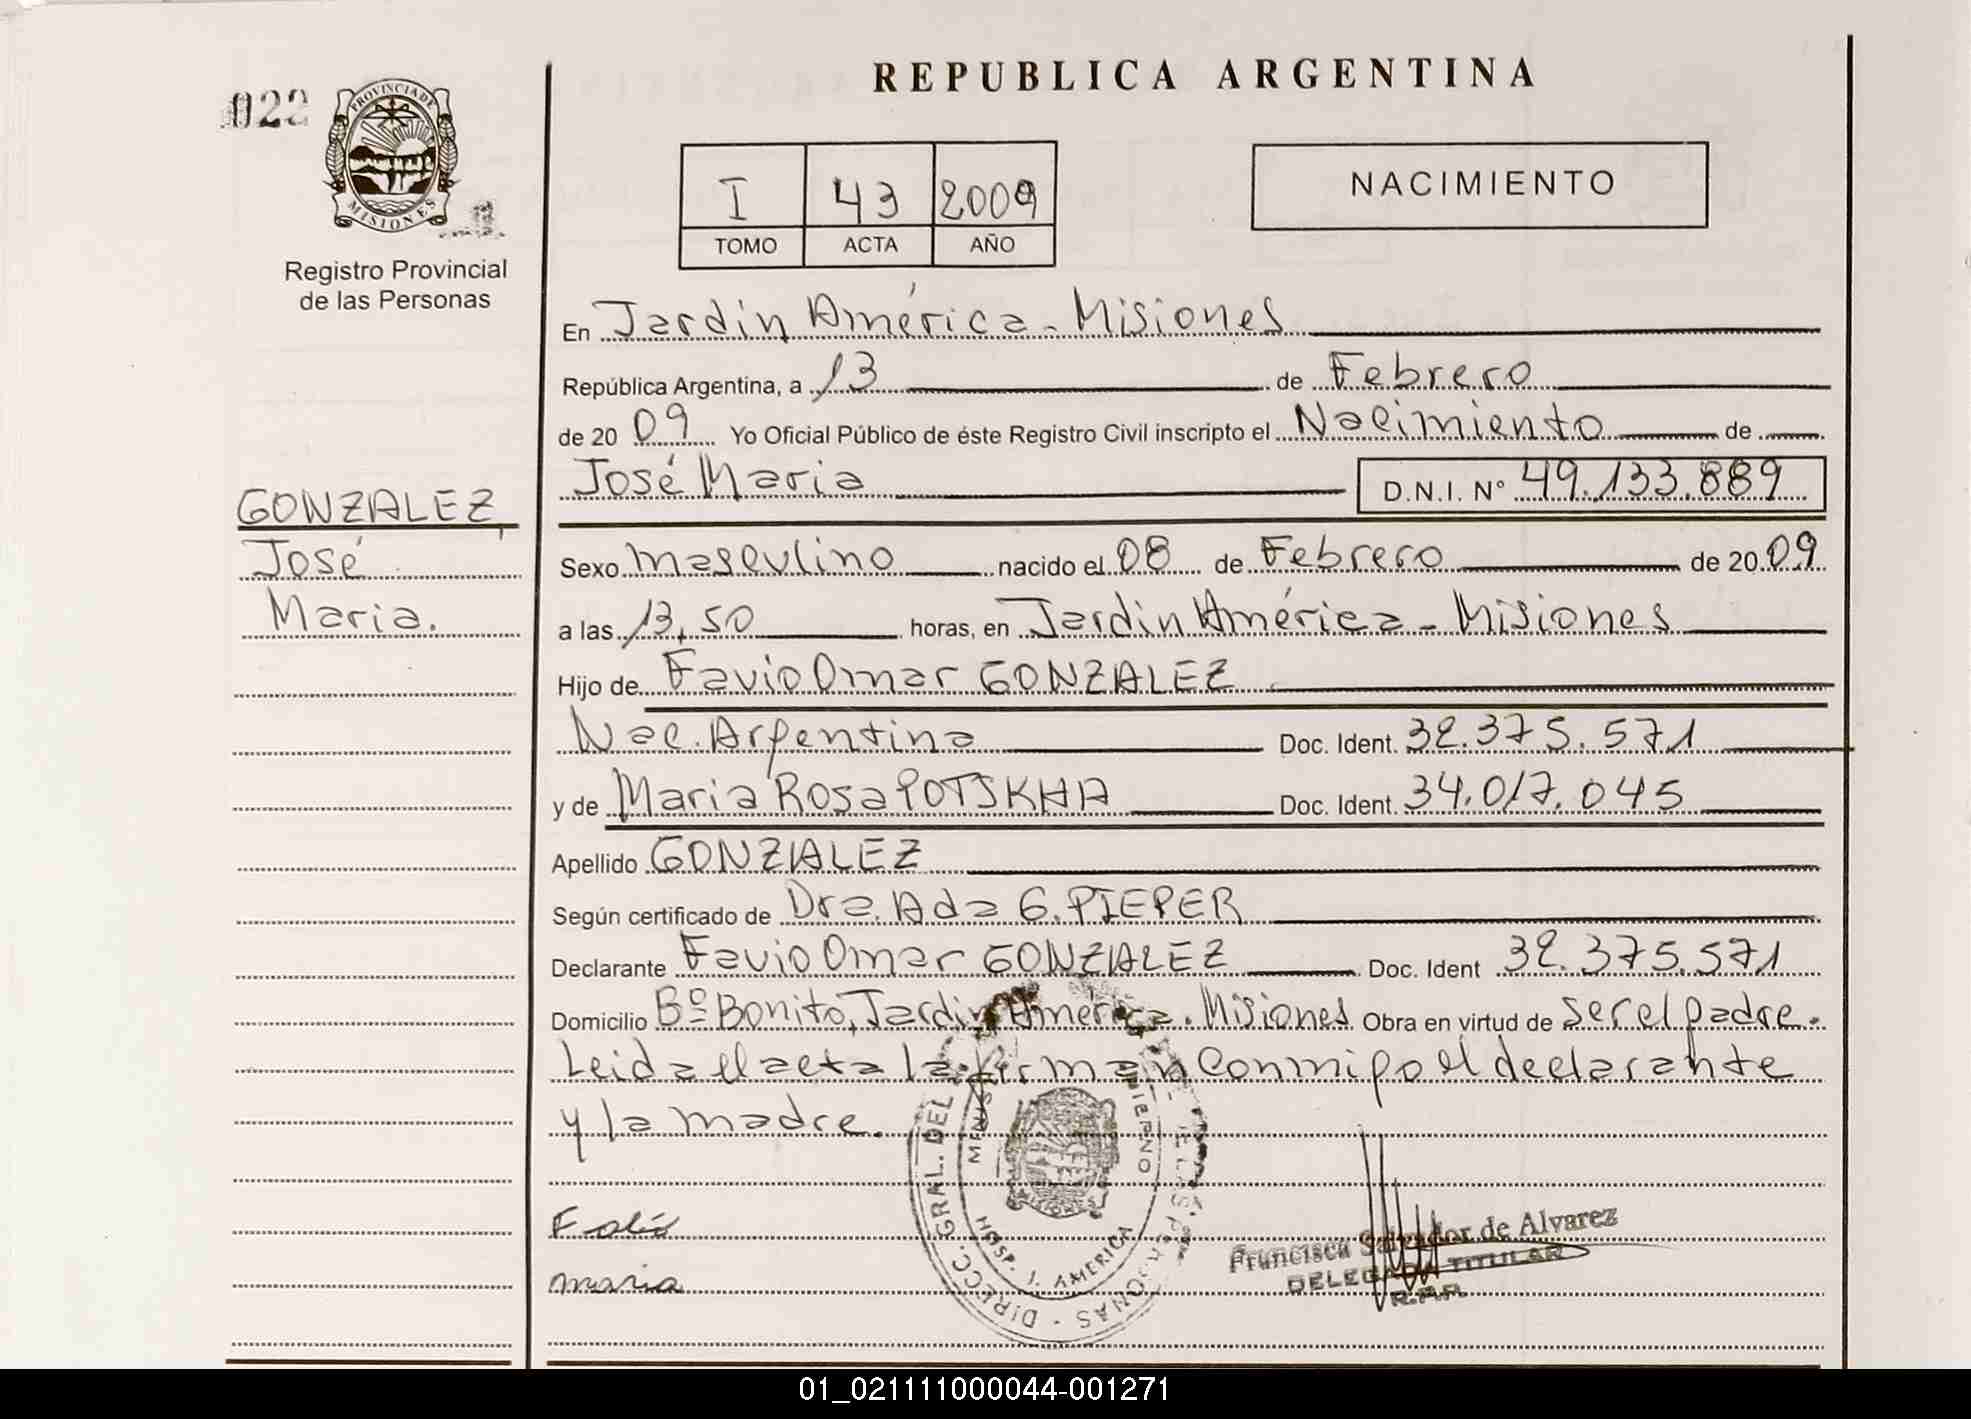 REPUBLICA ARGENTINA
022
PROVINCIA DE
MISIONES
Registro Provincial
de las Personas
I 43 2009
TOMO ACTA AÑO
NACIMIENTO
En Jardín América - Misiones
República Argentina, a 13 de Febrero
de 20 09 Yo Oficial Público de éste Registro Civil inscripto el Nacimiento de
José Maria D.N.I. N° 49.133.889
GONZALEZ
José
Maria.
Sexo masculino nacido el 08 de Febrero de 20 09
a las 13,50 horas, en Jardín América - Misiones
Hijo de Favio Omar GONZALEZ
Nac. Argentina Doc. Ident. 32.375.571
y de Maria Rosa POTSKHA Doc. Ident. 34.017.045
Apellido GONZALEZ
Según certificado de Dra. Ada G. PIEPER
Declarante Favio Omar GONZALEZ Doc. Ident 32.375.571
Domicilio Bº Bonito, Jardín América. Misiones Obra en virtud de ser el padre.
Leida el acta la firman conmigo el declarante
y la madre.
DIRECC. GRAL. DEL PERSONAS
HOSP. J. AMERICA
maria
Francisca Salvador de Alvarez
DELEGADA TITULAR
R.P.P.
01_021111000044-001271